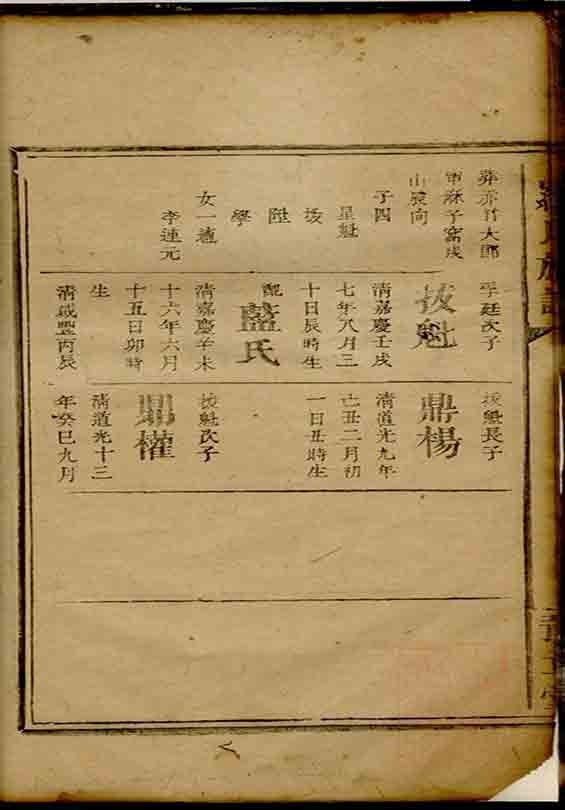 葬赤竹大郎
軍蔴子窩戌
山辰向
子四
星魁
拔
陞
學
女一適
李連元
學廷次子
拔魁
清嘉慶壬戌
七年八月三
十日辰時生
配藍氏
清嘉慶辛未
十六年六月
十五日卯時
生
清咸豐丙辰
拔魁長子
鼎楊
清道光九年
己丑二月初
一日丑時生
拔魁次子
鼎權
清道光十三
年癸巳九月